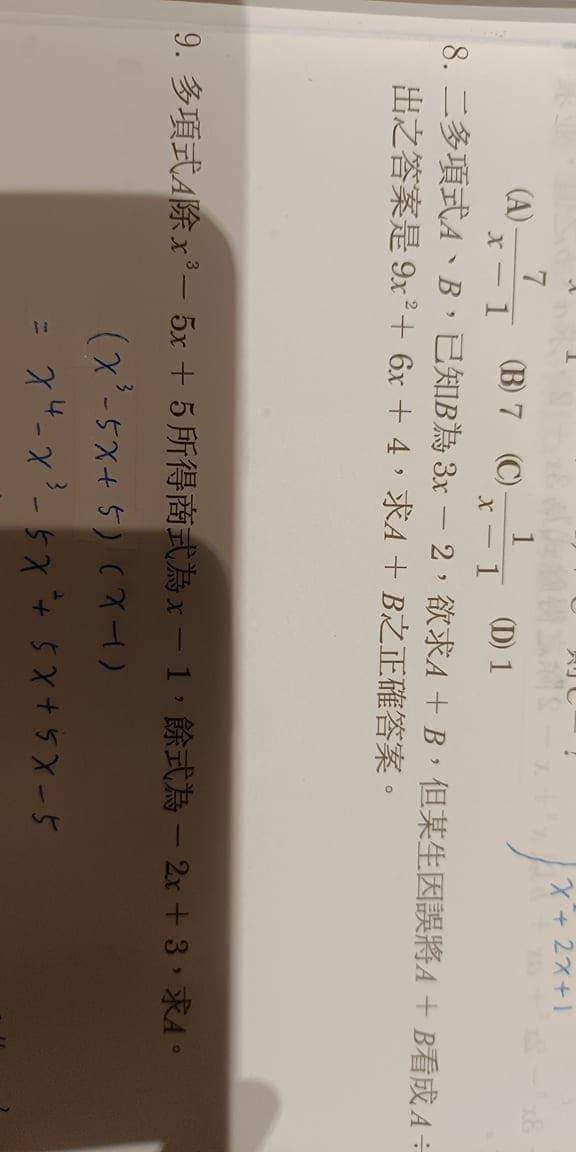 x² + 2x + 1
(A) 7/(x − 1) (B) 7 (C) 1/(x − 1) (D) 1
8. 二多項式A、B，已知B為 3x − 2，欲求A + B，但某生因誤將A + B看成 A ÷
出之答案是 9x² + 6x + 4，求A + B之正確答案。
9. 多項式A除 x³ − 5x + 5 所得商式為 x − 1，餘式為 − 2x + 3，求A。
(x³ - 5x + 5) (x - 1)
= x⁴ - x³ - 5x² + 5x + 5x - 5